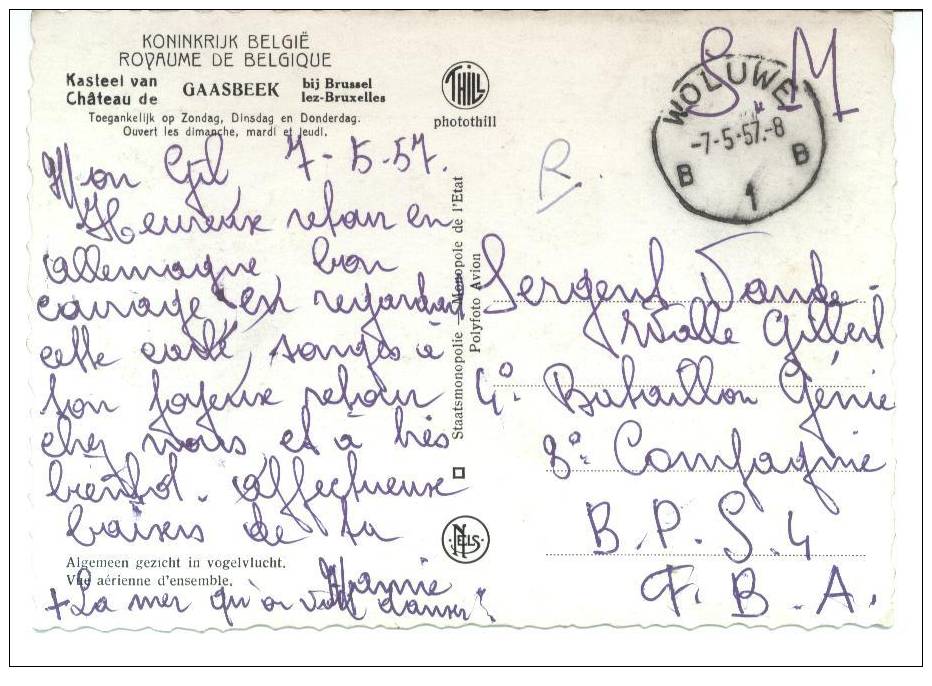 KONINKRIJK BELGIË
ROYAUME DE BELGIQUE
Kasteel van
Château de
GAASBEEK
bij Brussel
lez-Bruxelles
Toegankelijk op Zondag, Dinsdag en Donderdag.
Ouvert les dimanche, mardi et jeudi.
THILL
photothill
S M
WOLUWE
-7-5-57.-8
B B
1
R.
Mon Gil, 7-5-57.
Heureux retour en
allemagne, bon
courage en regardant
cette carte, songes à
ton joyeux retour
chez nous et à très
bientôt. Affectueux
baisers de ta
Mamie
+ La mer qu'on voit danser
Algemeen gezicht in vogelvlucht.
Vue aérienne d'ensemble.
Staatsmonopolie - Monopole de l'Etat
Polyfoto Avion
NELS
Sergent Vande
Walle Gilbert
4° Bataillon Génie
3° Compagnie
B.P.S. 4
F.B.A.